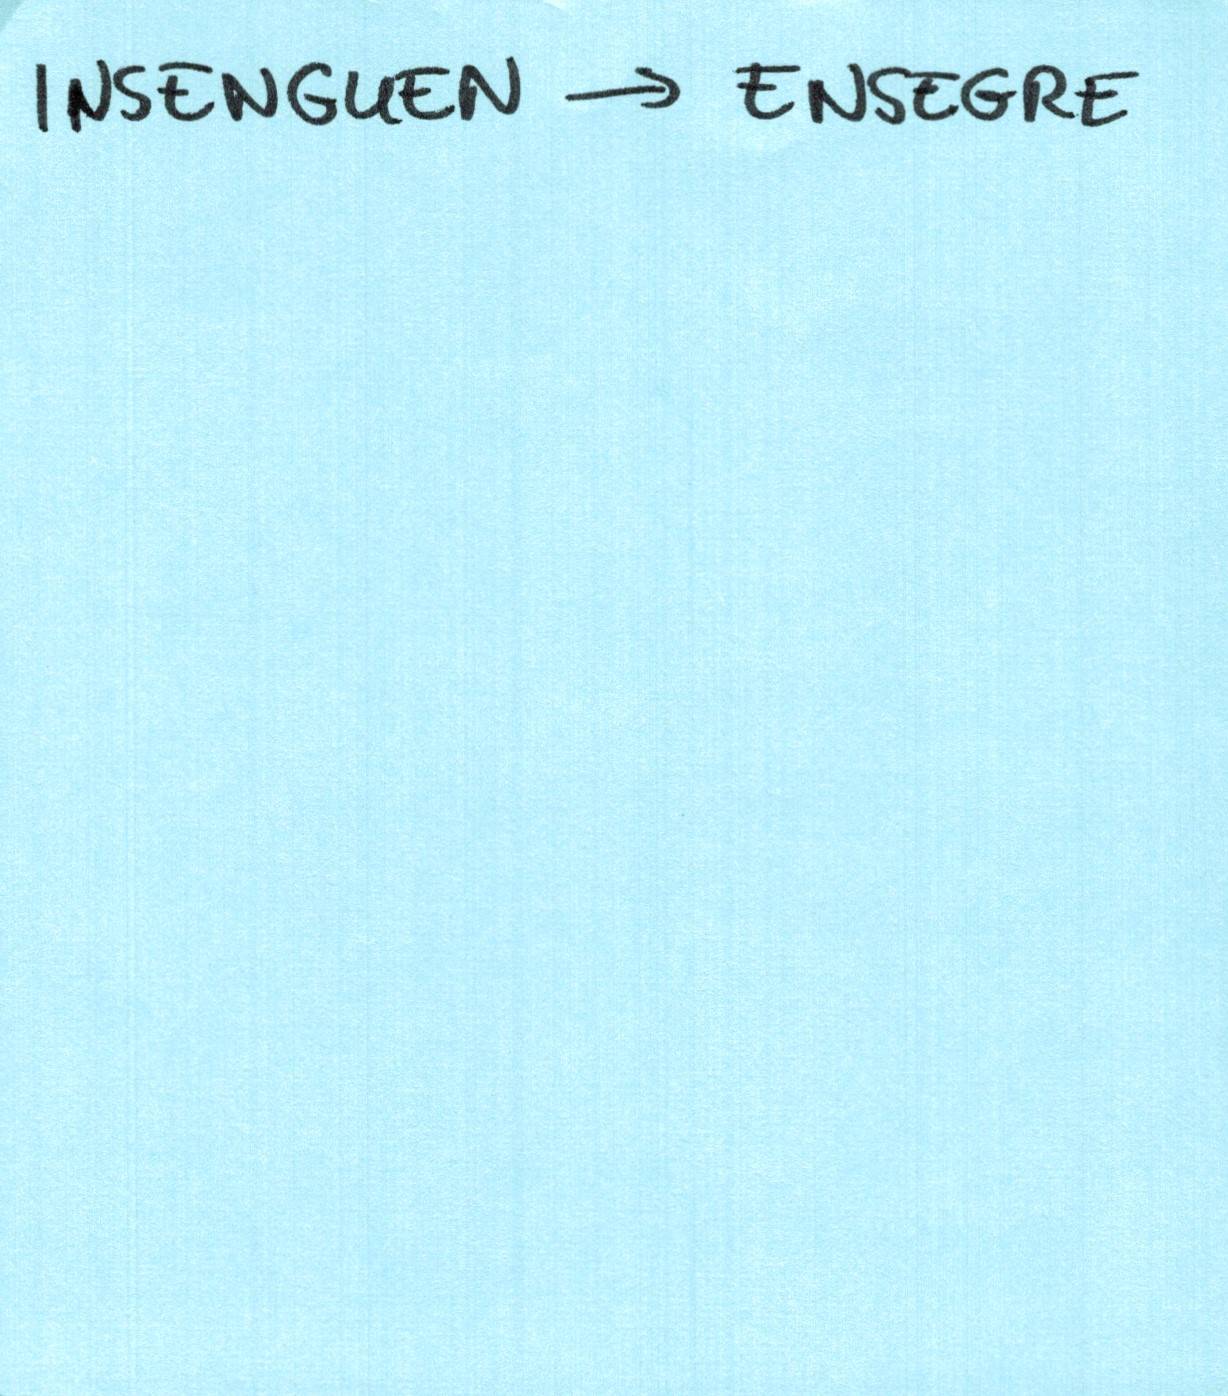 INSENGUEN → ENSEGRE